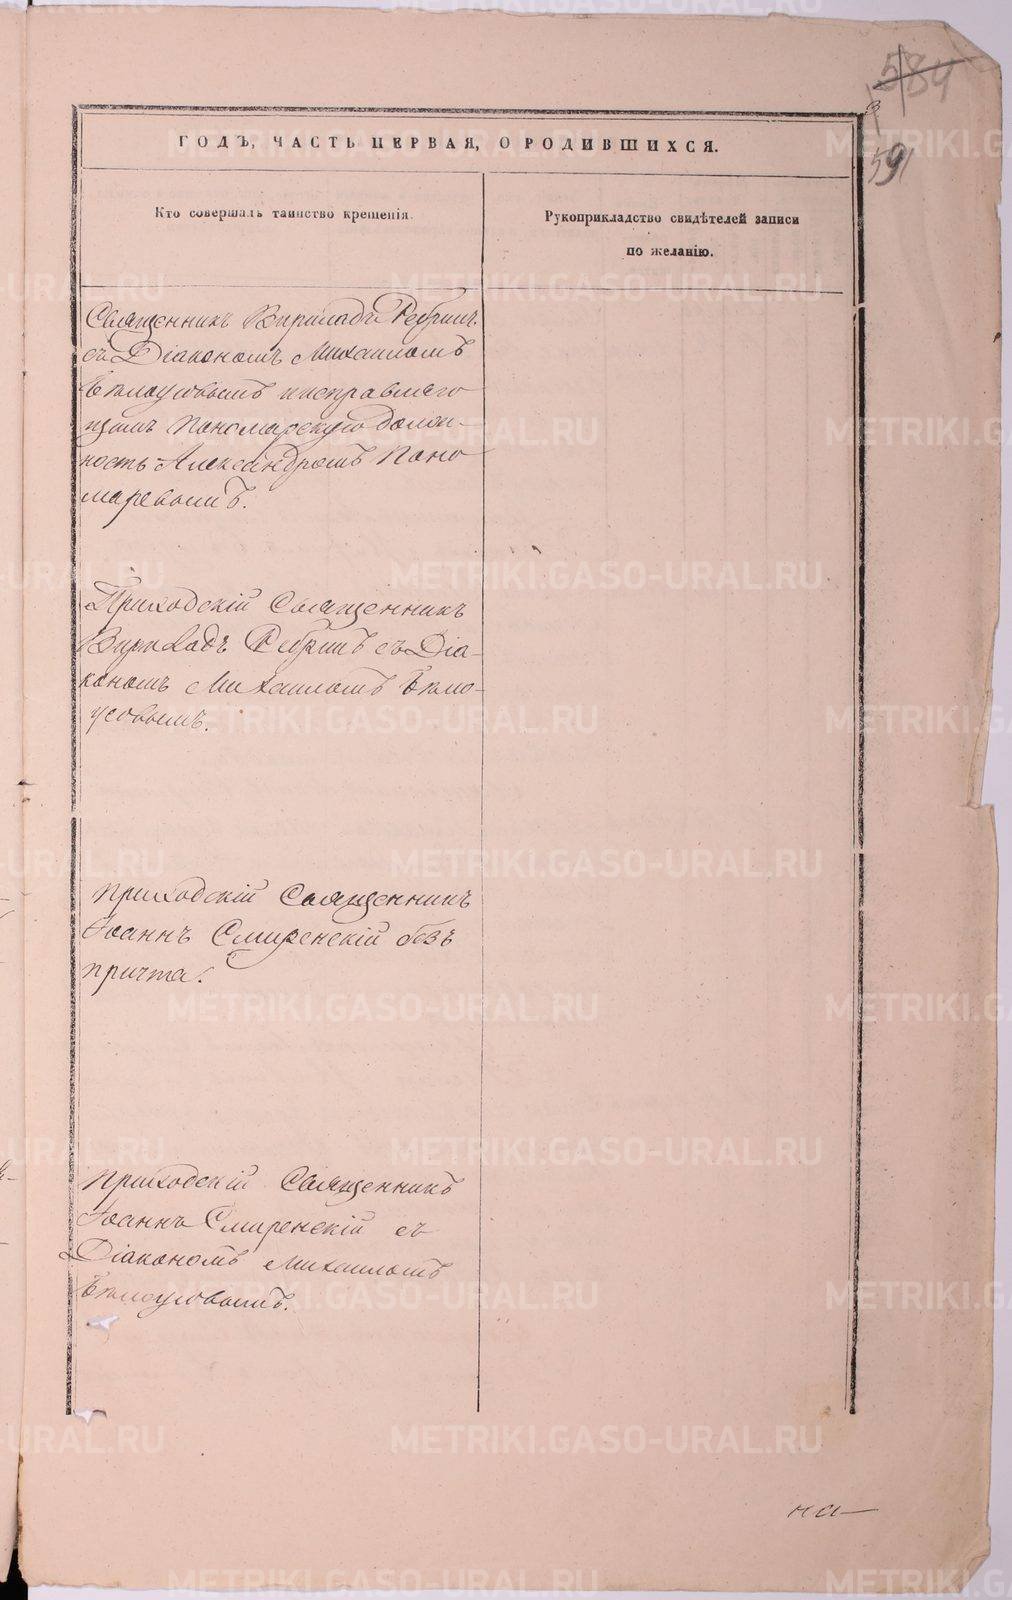 584
591
ГОДЪ, ЧАСТЬ ПЕРВАЯ, О РОДИВШИХСЯ.
Кто совершалъ таинство крещенія.
Рукоприкладство свидѣтелей записи
по желанію.
Священникъ
съ Діакономъ Михаиломъ
Бѣлоусовымъ
Пономарскую долж-
ность Александромъ Поно
маревымъ.
Приходскій Священникъ
съ Діа-
кономъ Михаиломъ Бѣло-
усовымъ.
Приходскій Священникъ
Іоаннъ Смиренскій безъ
причта.
Приходскій Священникъ
Іоаннъ Смиренскій съ
Діакономъ Михаиломъ
Бѣлоусовымъ.
на
METRIKI.GASO-URAL.RU